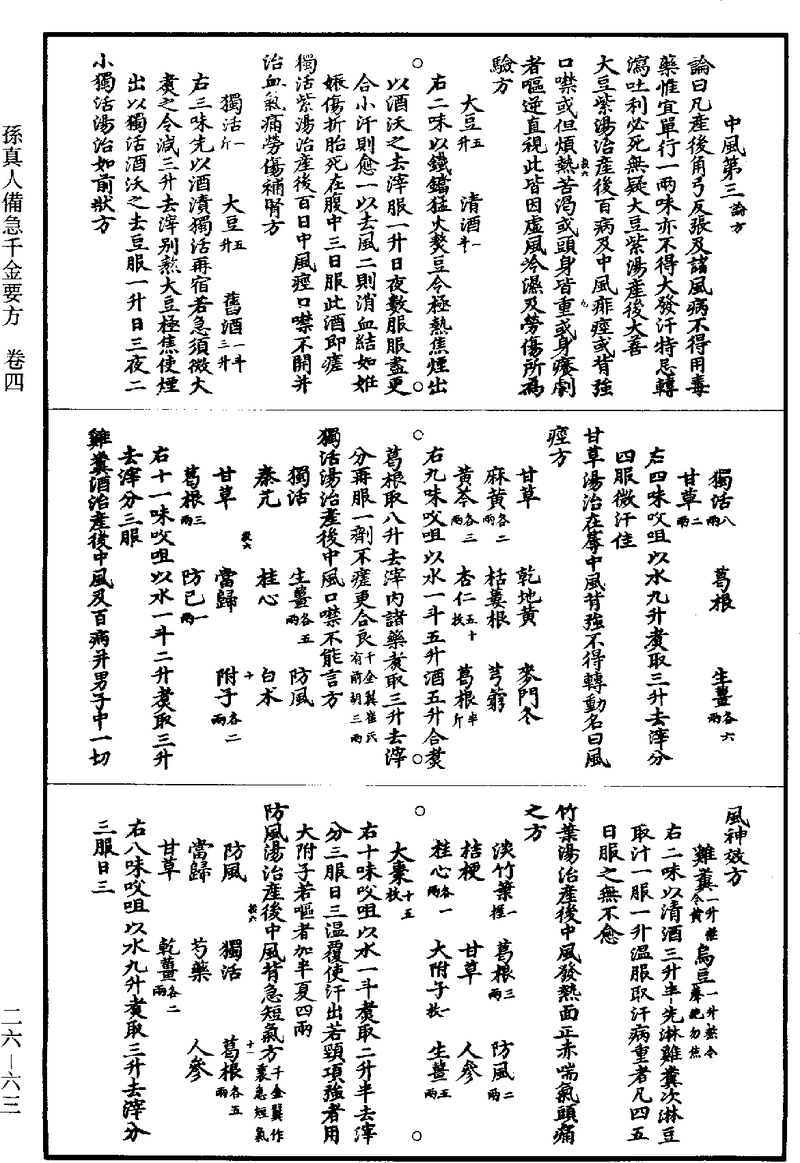 中風第三論方
論曰凡產後角弓反張及諸風病不得用毒
藥惟宜單行一兩味亦不得大發汗特忌轉
瀉吐利必死無疑大豆紫湯產後大善
大豆紫湯治產後百病及中風痱痙或背強
口噤或但煩熱苦渴或頭身皆重或身癢劇
者嘔逆直視此皆因虛風冷濕及勞傷所為
驗方
大豆五升 清酒一斗
右二味以鐵鐺猛火熬豆令極熱焦煙出
以酒沃之去滓服一升日夜數服服盡更
合小汗則愈一以去風二則消血結如姙
娠傷折胎死在腹中三日服此酒即瘥
獨活紫湯治產後百日中風痙口噤不開并
治血氣痛勞傷補腎方
獨活一斤 大豆五升 舊酒一斗三升
右三味先以酒漬獨活再宿若急須微火
煑之令減三升去滓別熬大豆極焦使煙
出以獨活酒沃之去豆服一升日三夜二
小獨活湯治如前狀方
獨活八兩 葛根 生薑各六兩
甘草二兩
右四味㕮咀以水九升煑取三升去滓分
四服微汗佳
甘草湯治在蓐中風背強不得轉動名曰風
痙方
甘草 乾地黃 麥門冬
麻黃各二兩 栝蔞根 芎藭
黃芩各三兩 杏仁五十枚 葛根半斤
右九味㕮咀以水一斗五升酒五升合煑
葛根取八升去滓內諸藥煑取三升去滓
分再服一劑不瘥更合良千金翼崔氏有前胡三兩
獨活湯治產後中風口噤不能言方
獨活 生薑各五兩 防風
秦艽 桂心 白朮
甘草 當歸 附子各二兩
葛根三兩 防已一兩
右十一味㕮咀以水一斗二升煑取三升
去滓分三服
雞糞酒治產後中風及百病并男子中一切
風神效方
雞糞一升熬令黃 烏豆一升熬令聲絕勿焦
右二味以清酒三升半先淋雞糞次淋豆
取汁一服一升溫服取汗病重者凡四五
日服之無不愈
竹葉湯治產後中風發熱面正赤喘氣頭痛
之方
淡竹葉一握 葛根三兩 防風二兩
桔梗 甘草 人參
桂心各一兩 大附子一枚 生薑五兩
大棗十五枚
右十味㕮咀以水一斗煑取二升半去滓
分三服日三溫覆使汗出若頸項強者用
大附子若嘔者加半夏四兩
防風湯治產後中風背急短氣方千金翼作裏急短氣
防風 獨活 葛根各五兩
當歸 芍藥 人參
甘草 乾薑各二兩
右八味㕮咀以水九升煑取三升去滓分
三服日三
孫真人備急千金要方 卷四
二六—六三